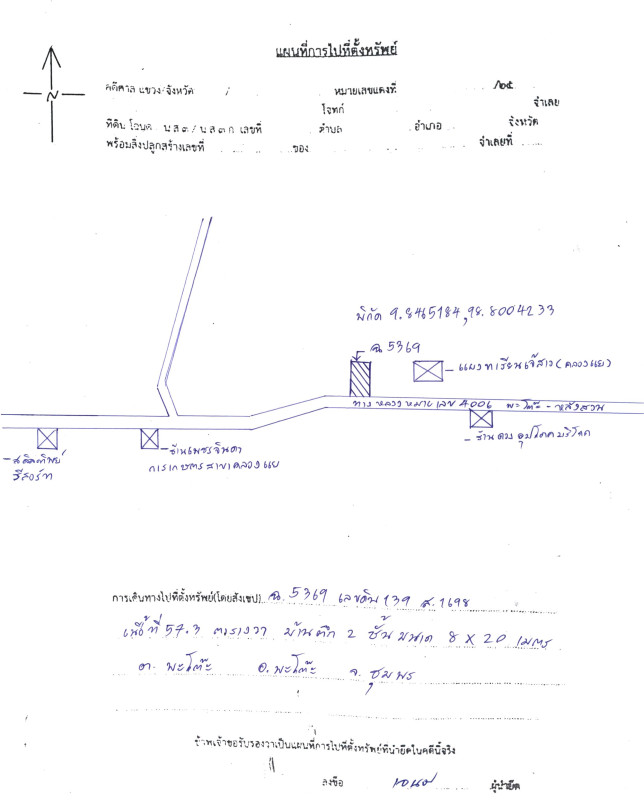 แผนที่การไปที่ตั้งทรัพย์
N
คดีศาล แขวง/จังหวัด / หมายเลขแดงที่ /๒๕
โจทก์ จำเลย
ที่ดิน โฉนด น ส ๓ / น ส ๓ ก เลขที่ ตำบล อำเภอ จังหวัด
พร้อมสิ่งปลูกสร้างเลขที่ ของ จำเลยที่
พิกัด 9.8465184,98.8004233
ฉ 5369
แผงทุเรียนเจ๊สาว (คลองแย)
ทางหลวงหมายเลข 4006 พะโต๊ะ - หลังสวน
ร้านเพชรจินดา
การเกษตรสาขาคลองแย
รีสอร์ท
ร้าน อุปโภคบริโภค
การเดินทางไปที่ตั้งทรัพย์(โดยสังเขป) ฉ. 5369 เลขดิน 139 ส. 1698
เนื้อที่ 57.3 ตารางวา บ้านตึก 2 ชั้น ขนาด 8 X 20 เมตร
ต. พะโต๊ะ อ. พะโต๊ะ จ. ชุมพร
ข้าพเจ้าขอรับรองว่าเป็นแผนที่การไปที่ตั้งทรัพย์ที่นำยึดในคดีนี้จริง
ลงชื่อ ผู้นำยึด